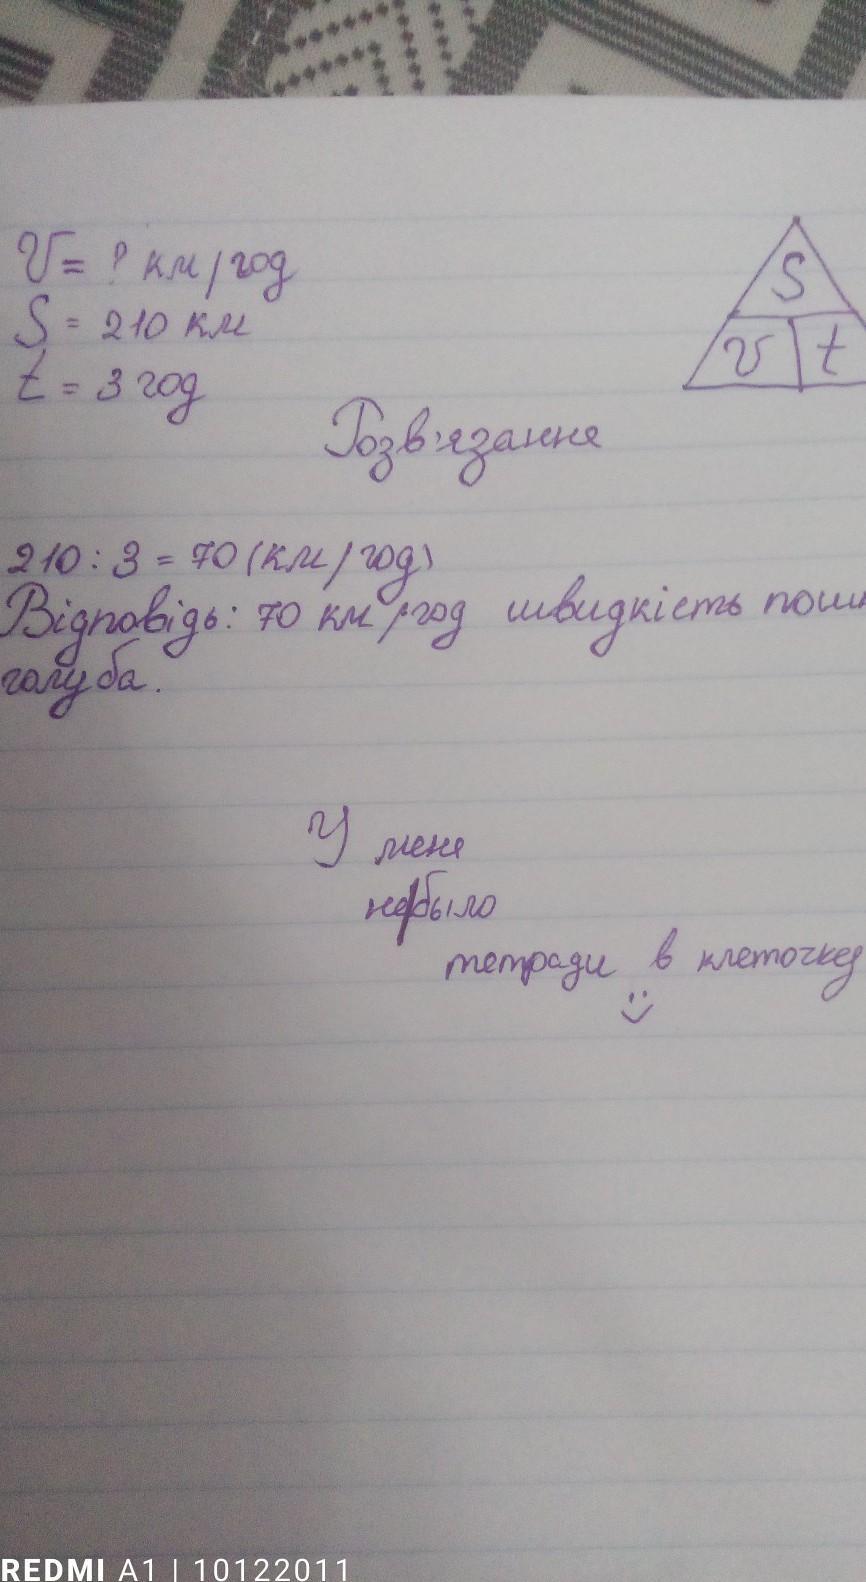 V = ? км/год
S = 210 км
t = 3 год
S
V t
Розв'язання
210 : 3 = 70 (км/год)
Відповідь: 70 км/год швидкість
голуба.
У мене
не/было
тетради в клеточку
REDMI A1 | 10122011